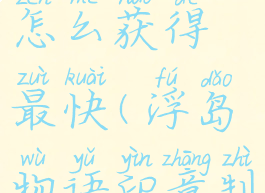 zěn me huò dé
怎么获得
zuì kuài fú dǎo
最快(浮岛
wù yǔ yìn zhāng zhì
物语印章制